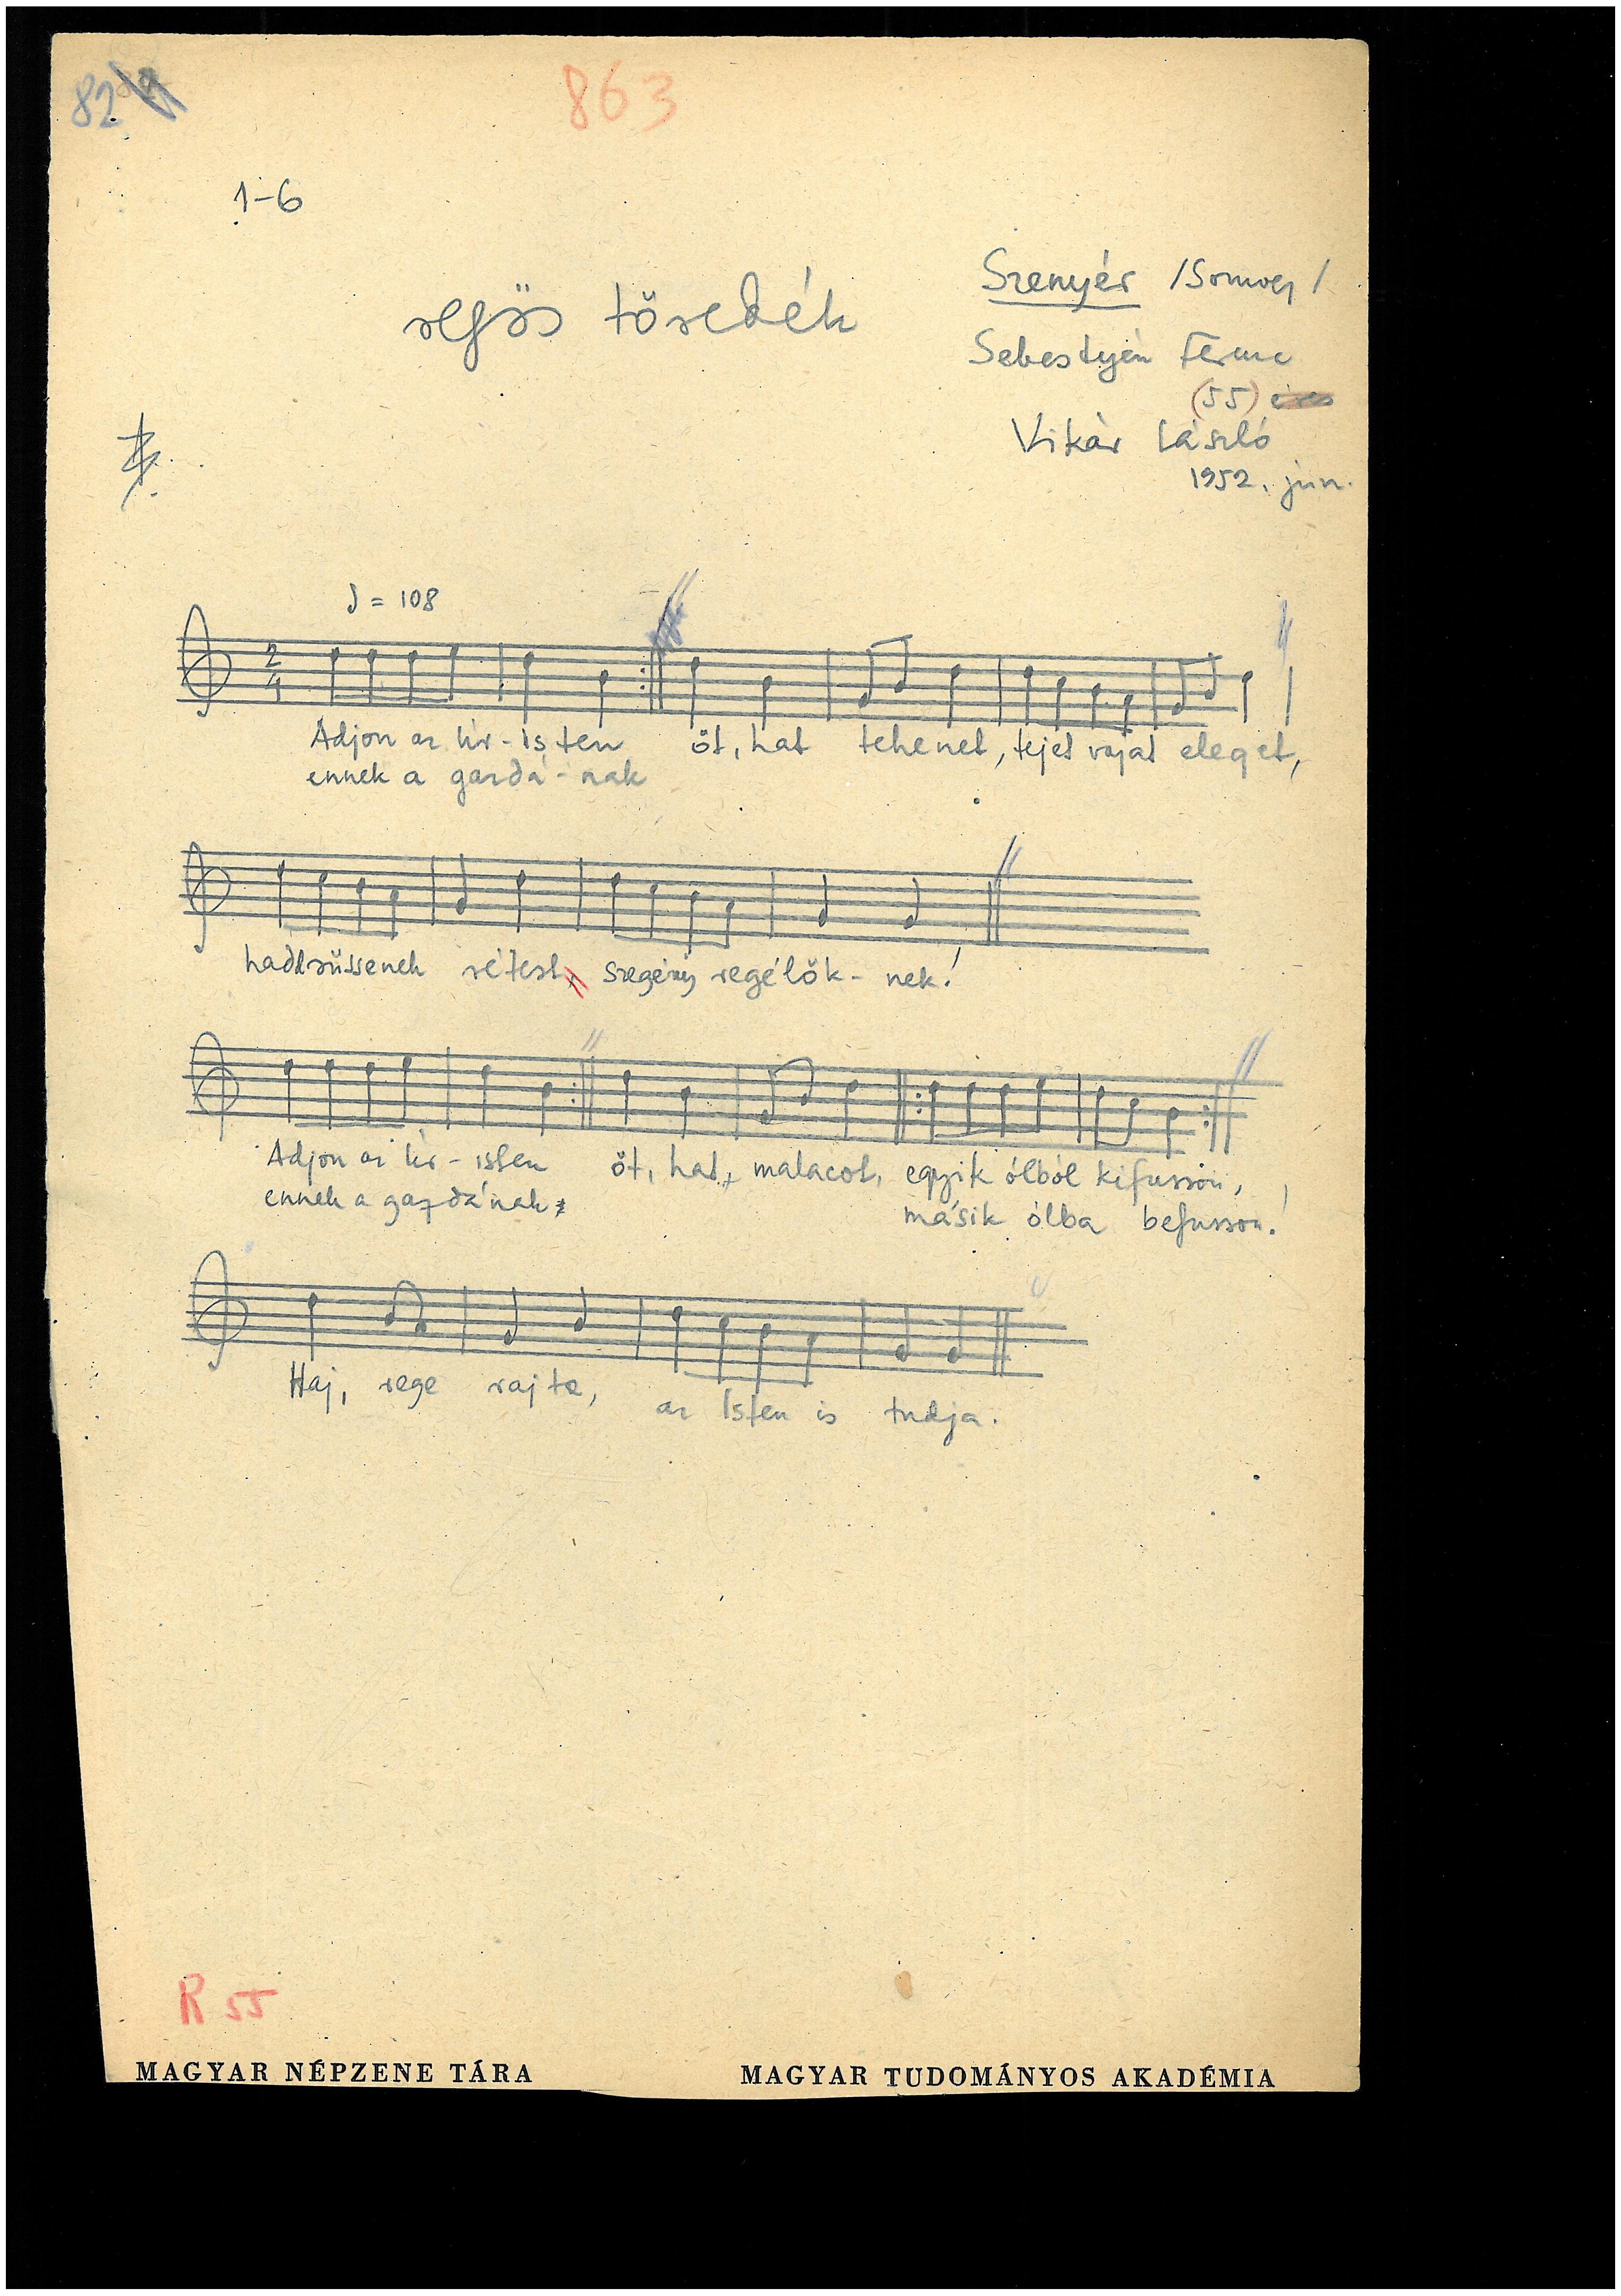 82
863
1-6
Szenyér /Somogy/
regös töredék
Sebestyén Ferenc
(55) éves
Vikár László
1952. jún.
♩ = 108
2/4
Adjon az Úr-isten öt, hat tehenet, tejet vajat eleget,
ennek a gazdá-nak
hadd süssenek rétest, szegény regélők-nek!
Adjon az Úr-isten öt, hat, malacot, egyik ólból kifusson,
ennek a gazdának, másik ólba befusson!
Haj, rege rajta, az Isten is tudja.
R 55
MAGYAR NÉPZENE TÁRA MAGYAR TUDOMÁNYOS AKADÉMIA